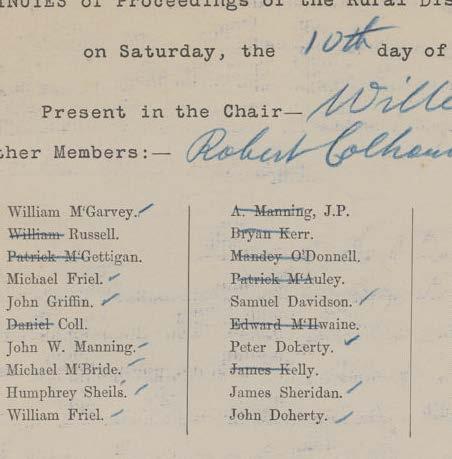 MINUTES of Proceedings of the Rural Dis
on Saturday, the 10th day of
Present in the Chair— Wille
ther Members:— Robert Colhoun
William M'Garvey.
William Russell.
Patrick M'Gettigan.
Michael Friel.
John Griffin.
Daniel Coll.
John W. Manning.
Michael M'Bride.
Humphrey Sheils.
William Friel.
A. Manning, J.P.
Bryan Kerr.
Mandey O'Donnell.
Patrick M'Auley.
Samuel Davidson.
Edward M'Ilwaine.
Peter Doherty.
James Kelly.
James Sheridan.
John Doherty.